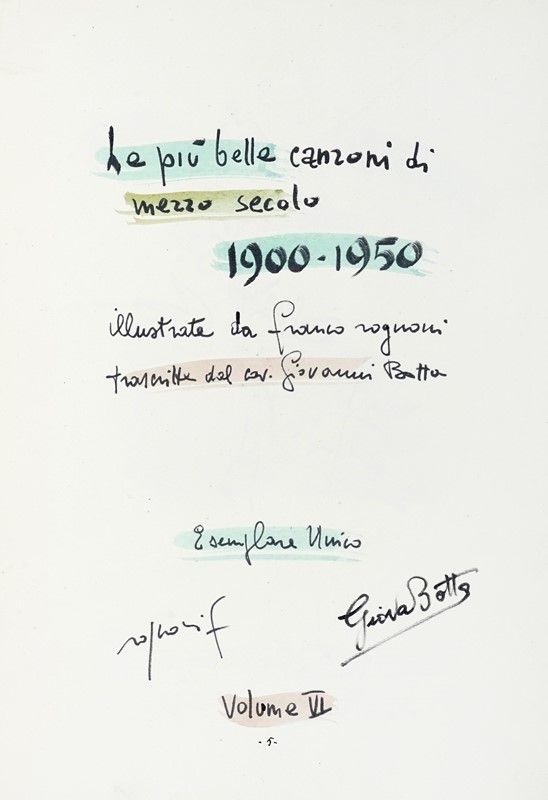 Le più belle canzoni di
mezzo secolo
1900-1950
illustrate da franco rognoni
trascritte dal cav. Giovanni Botta
Esemplare Unico
rognoni f
Giova Botta
Volume VI
- 5 -